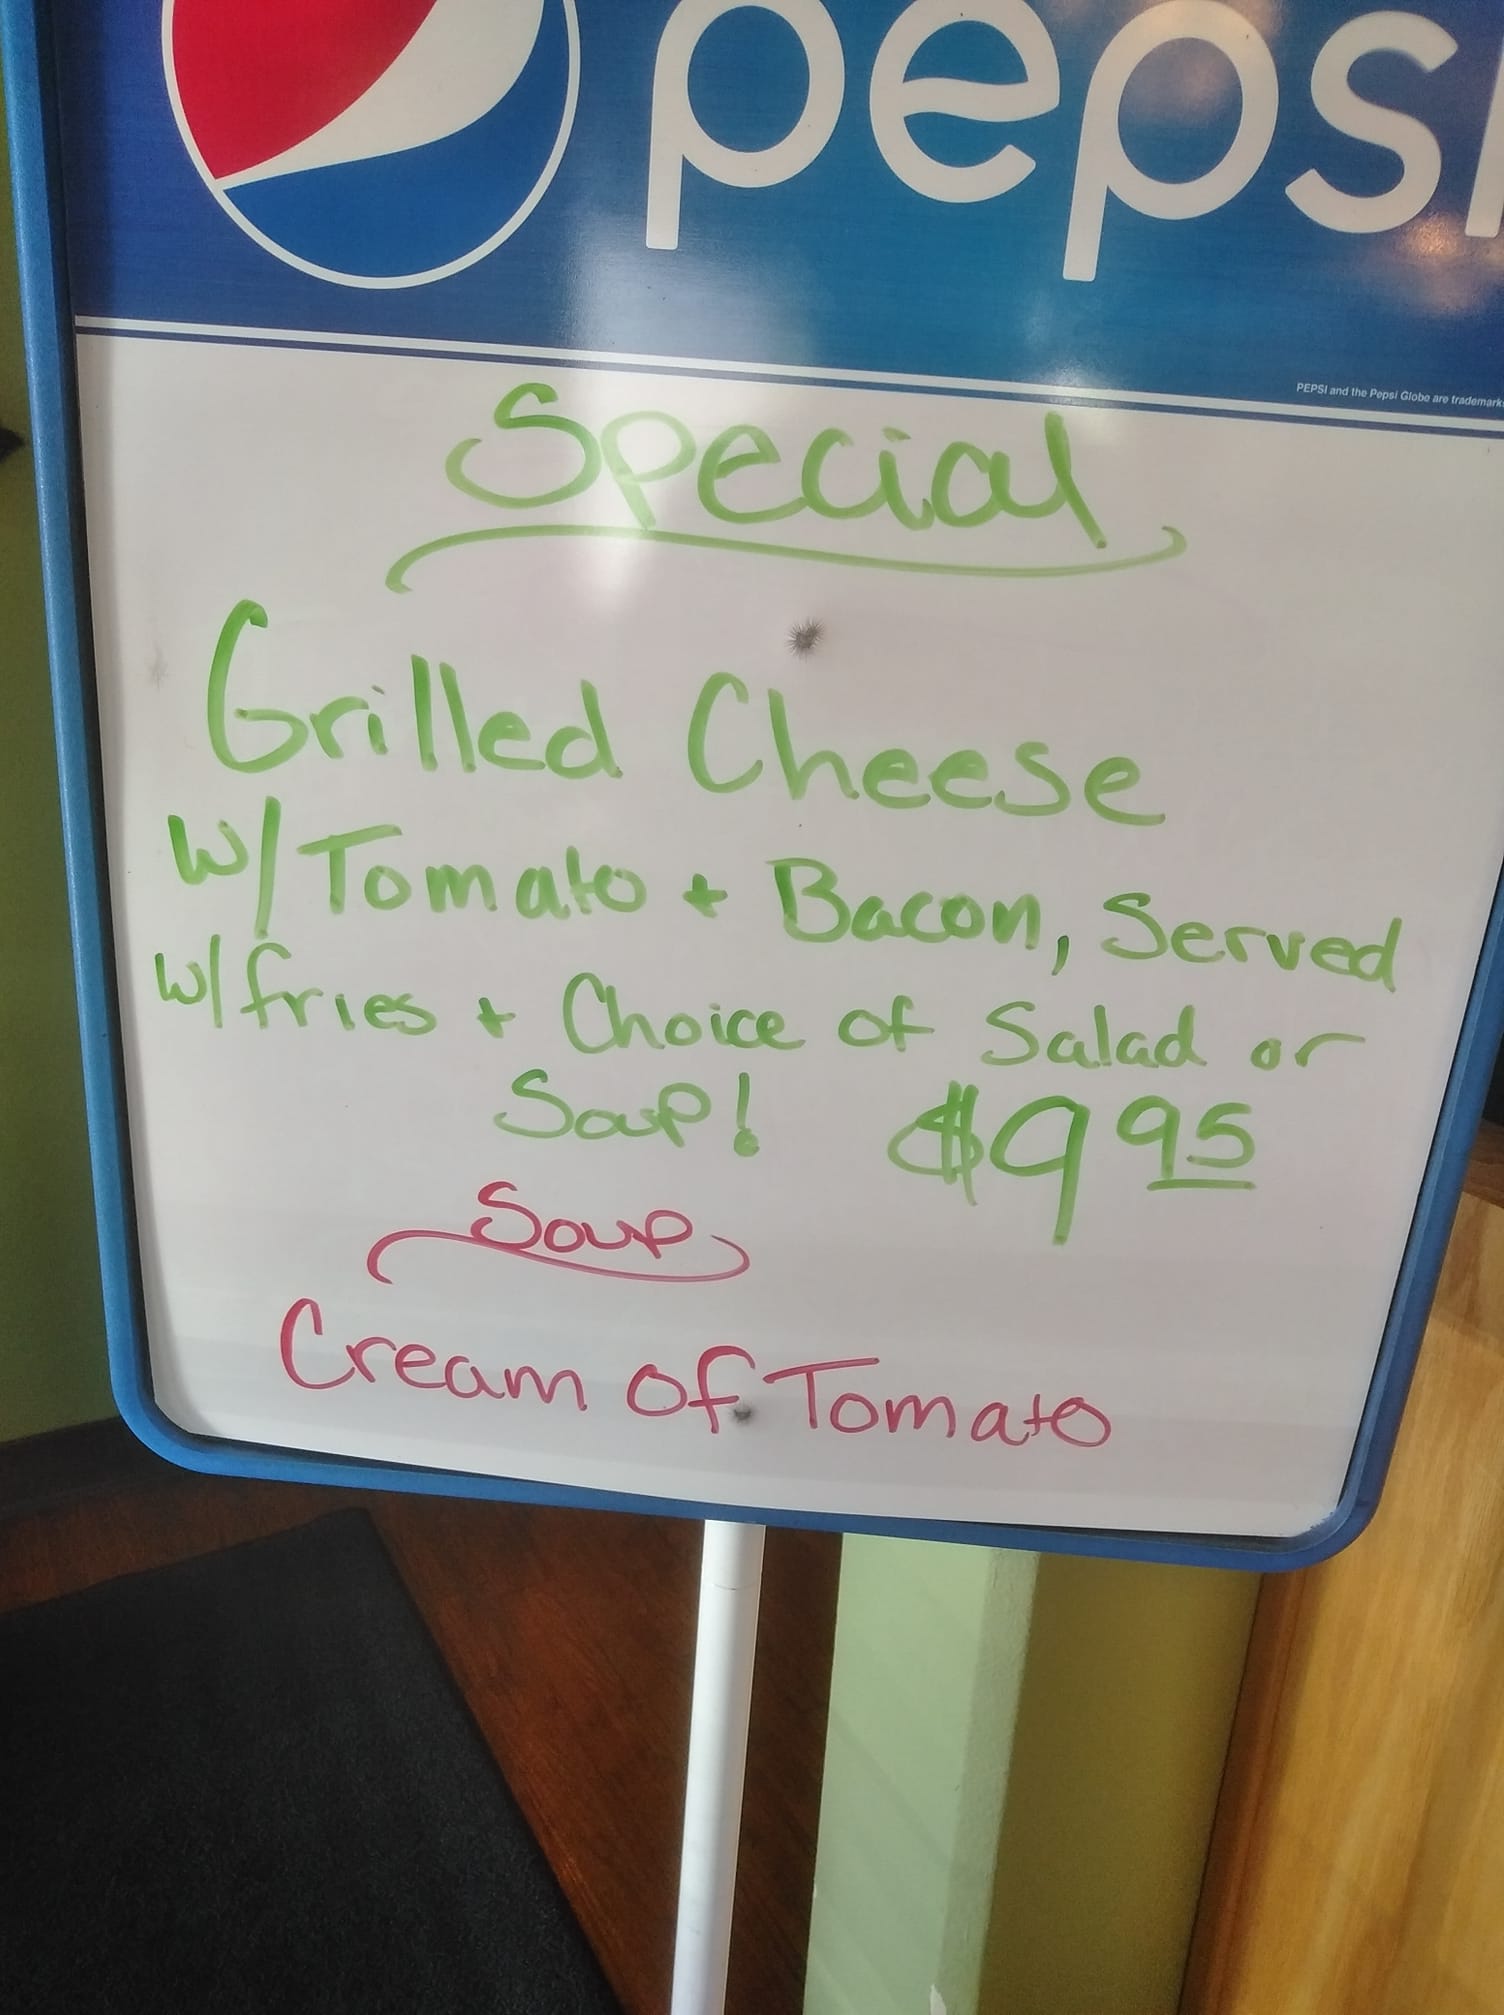 pepsi
PEPSI and the Pepsi Globe are trademarks
Special
Grilled Cheese
W/Tomato + Bacon, Served
W/fries + Choice of Salad or
Soup! $9 95
Soup
Cream of Tomato